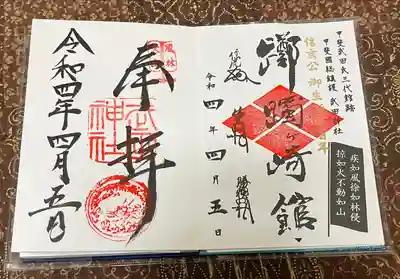 甲斐武田氏三代館跡
甲斐國総鎮護 武田神社
信玄公 御生
年
躑躅ヶ崎館
令和四年四月五日
疾如風徐如林侵
掠如火不動如山
風林
奉拝
武田
神社
令和四年四月五日